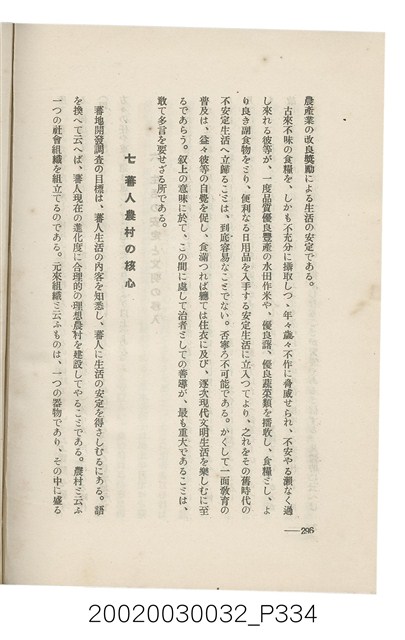 農產業の改良獎勵による生活の安定である。
古來不味の食糧を、しかも不充分に攝取しつゝ年々歲々不作に脅威せられ、不安やる瀨なく過
し來れる彼等が、一度品質優良豐產の水田作米や、優良藷、優良蔬菜類を播收し、食糧とし、よ
り良き副食物をとり、便利なる日用品を入手する安定生活に立入つてより、之れをその舊時代の
不安定生活へ立歸ることは、到底容易なことでない。否寧ろ不可能である。かくして一面敎育の
普及は、益々彼等の自覺を促し、食滿つれば軈ては住衣に及び、逐次現代文明生活を樂しむに至
るであらう。叙上の意味に於て、この間に處して治者としての善導が、最も重大であることは、
敢て多言を要せざる所である。
七 蕃人農村の核心
蕃地開發調査の目標は、蕃人生活の內容を知悉し、蕃人に生活の安定を得さしむるにある。語
を換へて云へば、蕃人現在の進化度に合理的の理想農村を建設してやることである。農村と云ふ
一つの社會組織を組立てるのである。元來組織と云ふものは、一つの器物であり、その中に盛る
—296
20020030032_P334